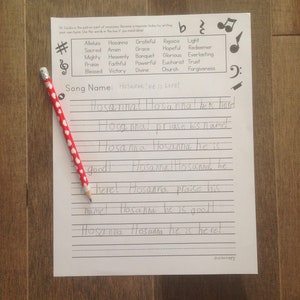 Alleluia Hosanna Grateful Rejoice Light
Sacred Amen Grace Hopeful Redeemer
Mighty Heavenly Banquet Glorious Everlasting
Praise Faithful Powerful Eucharist Trust
Blessed Victory Divine Church Forgiveness
Song Name: Hosanna! he is here!
Hosanna! Hosanna he is here!
Hosanna! praise his name!
Hosanna Hosanna he is
good! Hosanna! Hosanna he is
here! Hosanna praise his
name! Hosanna he is good!
Hosanna Hosanna he is here!